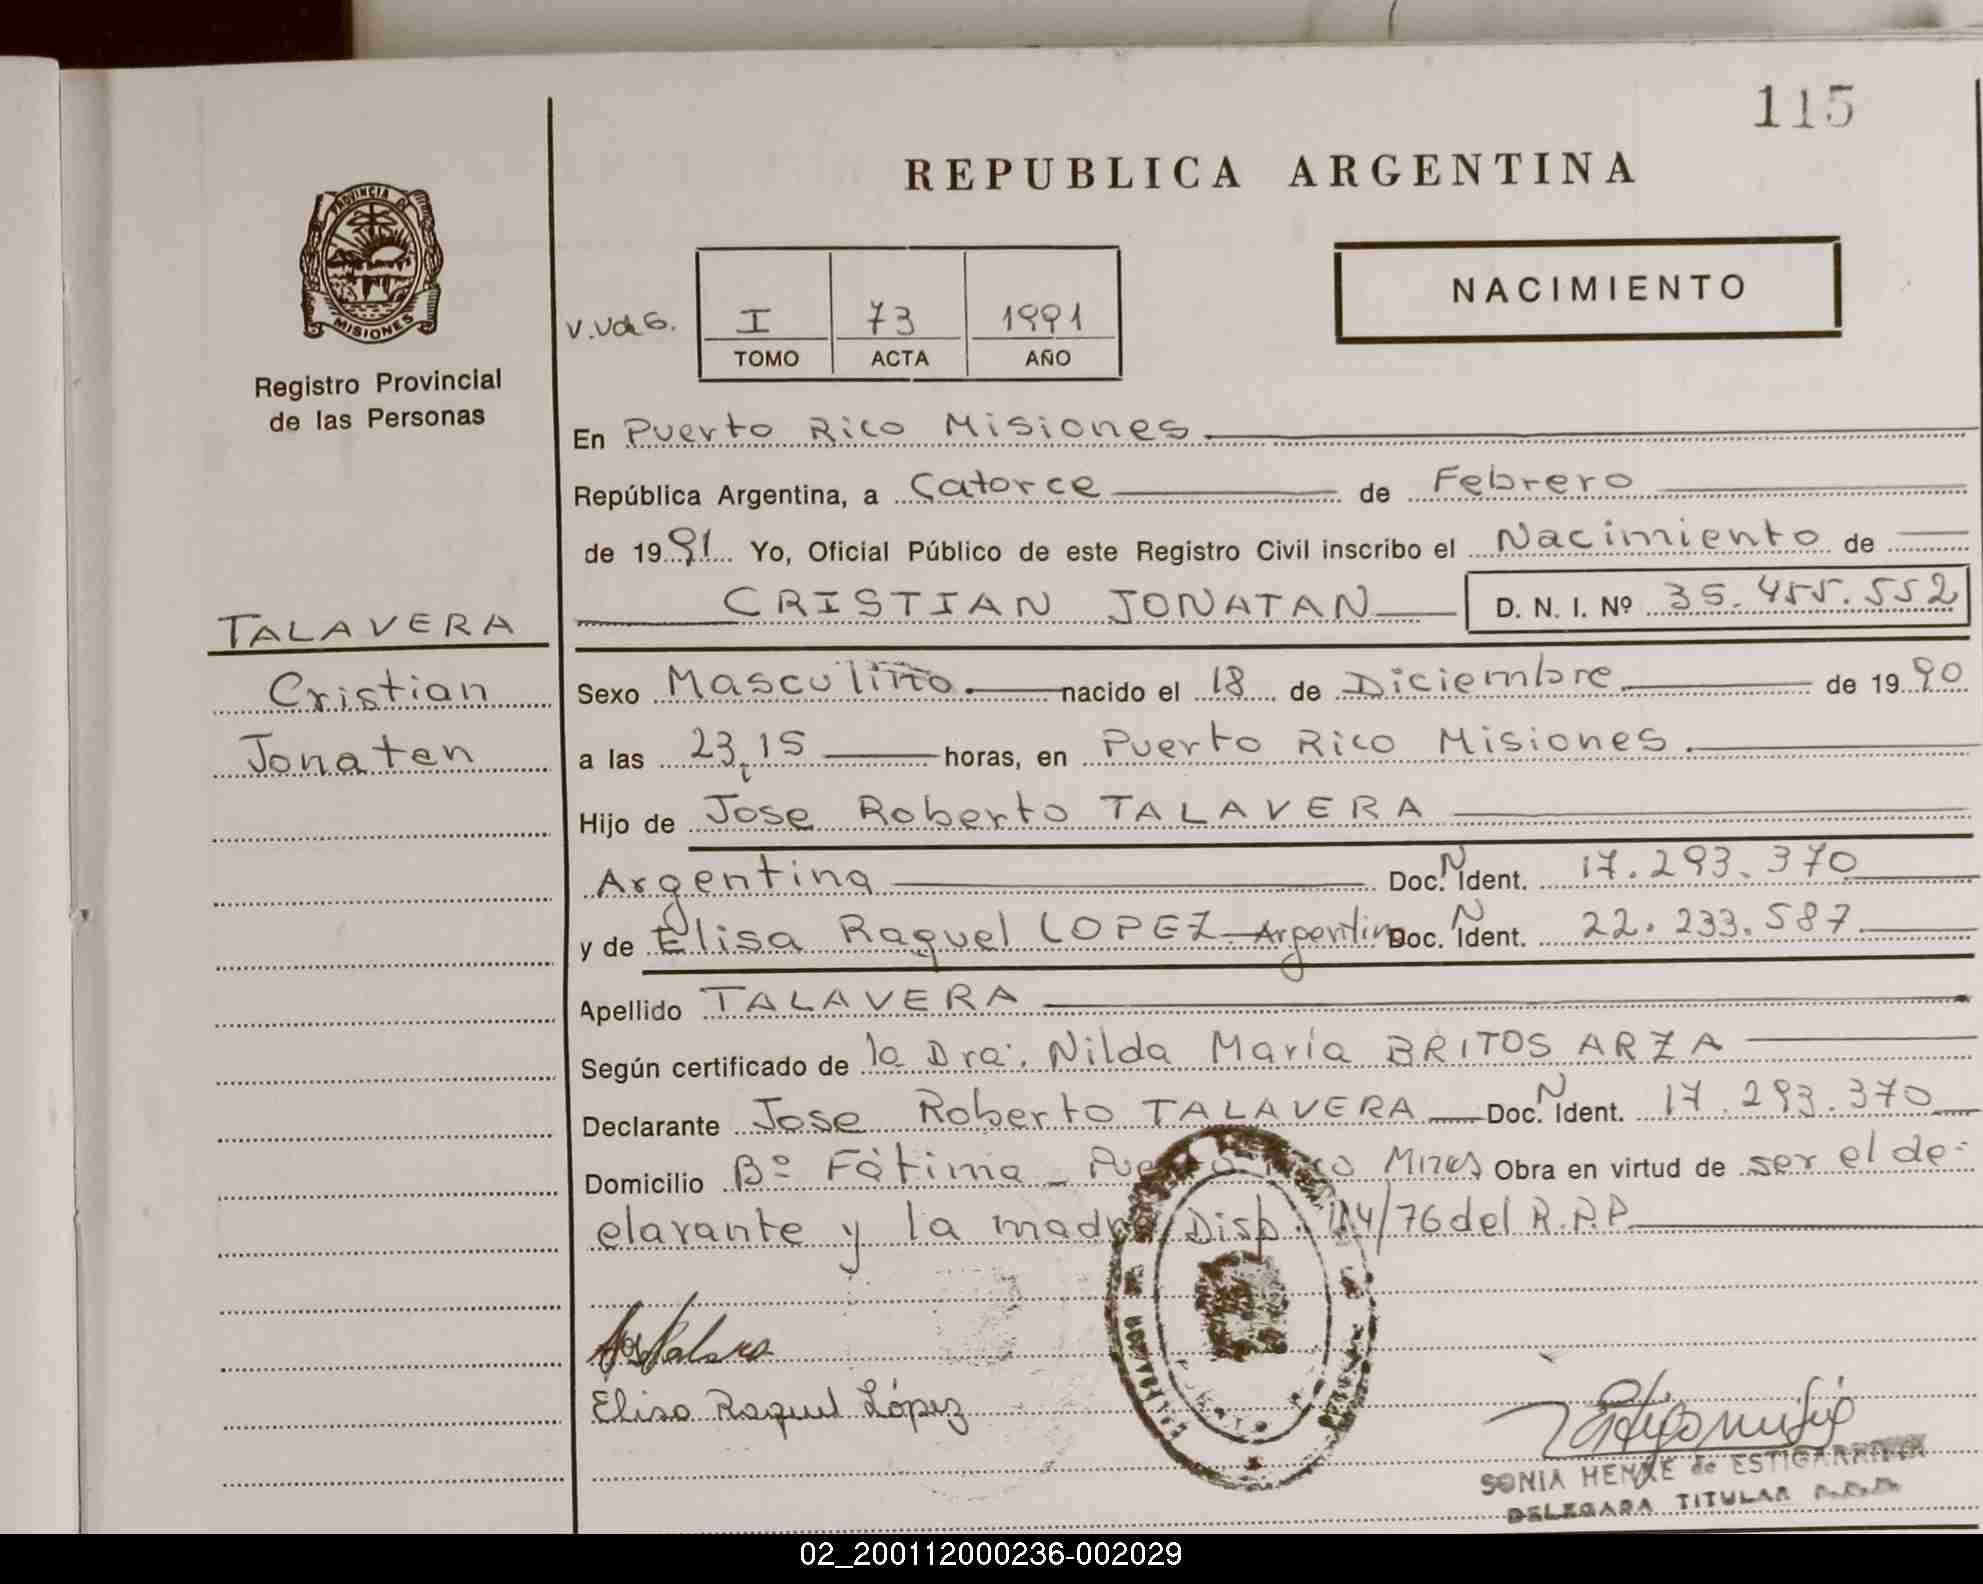 115
REPUBLICA ARGENTINA
PROVINCIA DE
MISIONES
Registro Provincial
de las Personas
V.Vda G.
I 73 1991
TOMO ACTA AÑO
NACIMIENTO
En Puerto Rico Misiones
República Argentina, a Catorce de Febrero
de 1991 Yo, Oficial Público de este Registro Civil inscribo el Nacimiento de
CRISTIAN JONATAN D. N. I. Nº 35.455.552
TALAVERA
Cristian
Jonatan
Sexo Masculino. nacido el 18 de Diciembre de 1990
a las 23,15 horas, en Puerto Rico Misiones.
Hijo de Jose Roberto TALAVERA
Argentina Doc. N Ident. 17.293.370
y de Elisa Raquel LOPEZ - Argentina Doc. N Ident. 22.233.587
Apellido TALAVERA
Según certificado de la Dra. Nilda María BRITOS ARZA
Declarante Jose Roberto TALAVERA Doc. N Ident. 17.293.370
Domicilio Bº Fátima - Puerto Rico Mnes Obra en virtud de ser el de-
clarante y la madre Disp. 114/76 del R.P.P.
Elisa Raquel López
SONIA HENKE de ESTIGARRIBIA
DELEGADA TITULAR
02_200112000236-002029